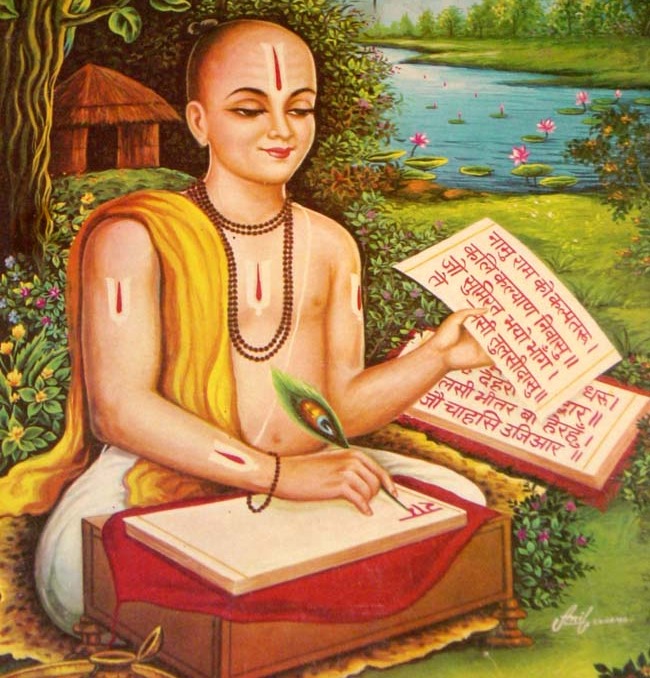 नामु राम को कल्पतरू।
कालि कल्याण निवासु॥
जौ सुमिरत भयो भाँग।
तै सी तुलसीदासु॥
धरु।
देहरी द्वार॥
लसी भीतर बा हेरहुँ।
जौ चाहासि उजिआर॥